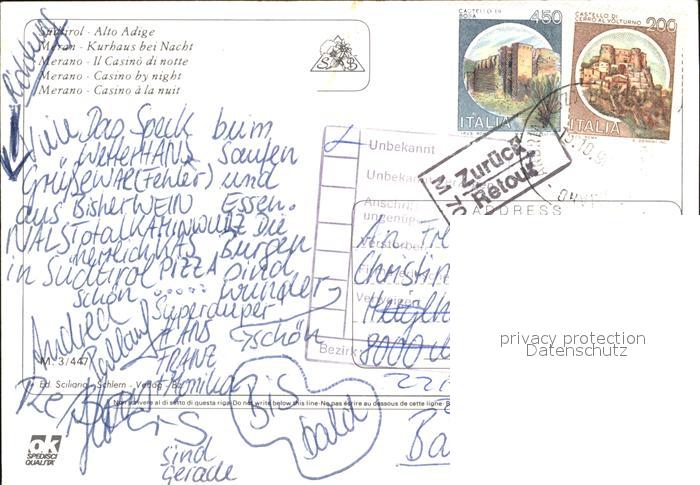 Südtirol - Alto Adige
Meran - Kurhaus bei Nacht
Merano - Il Casinò di notte
Merano - Casino by night
Merano - Casino à la nuit
S B
CASTELLO DI
450
ITALIA
CASTELLO DI
CERRO AL VOLTURNO
200
ITALIA
Zurück
Retour
Unbekannt
Unbekannt
Anschrift
ungenüg
Verstorben
Verweigert
Bezirk
ADDRESS
Viele Das Speck beim
Wetter HANS Saufen
Grüße WAE(Fehler) und
aus Bisher WEIN Essen.
NALS Total KAMINWURZ Die
herrlich KAS Burgen
in Südtirol PIZZA sind
schön ..... wunder
Superduper
HANS schön
FRANZ
Andrea
Monika
Bis
bald
sind
gerade
An
Christin
8000
Ba
M. 3/447
Ed. Sciliana - Schlern - Verlag - Bz
Non scrivere al di sotto di questa riga - Do not write below this line - Ne pas écrire au dessous de cette ligne
ok
SPEDISCI
QUALITA'
privacy protection
Datenschutz